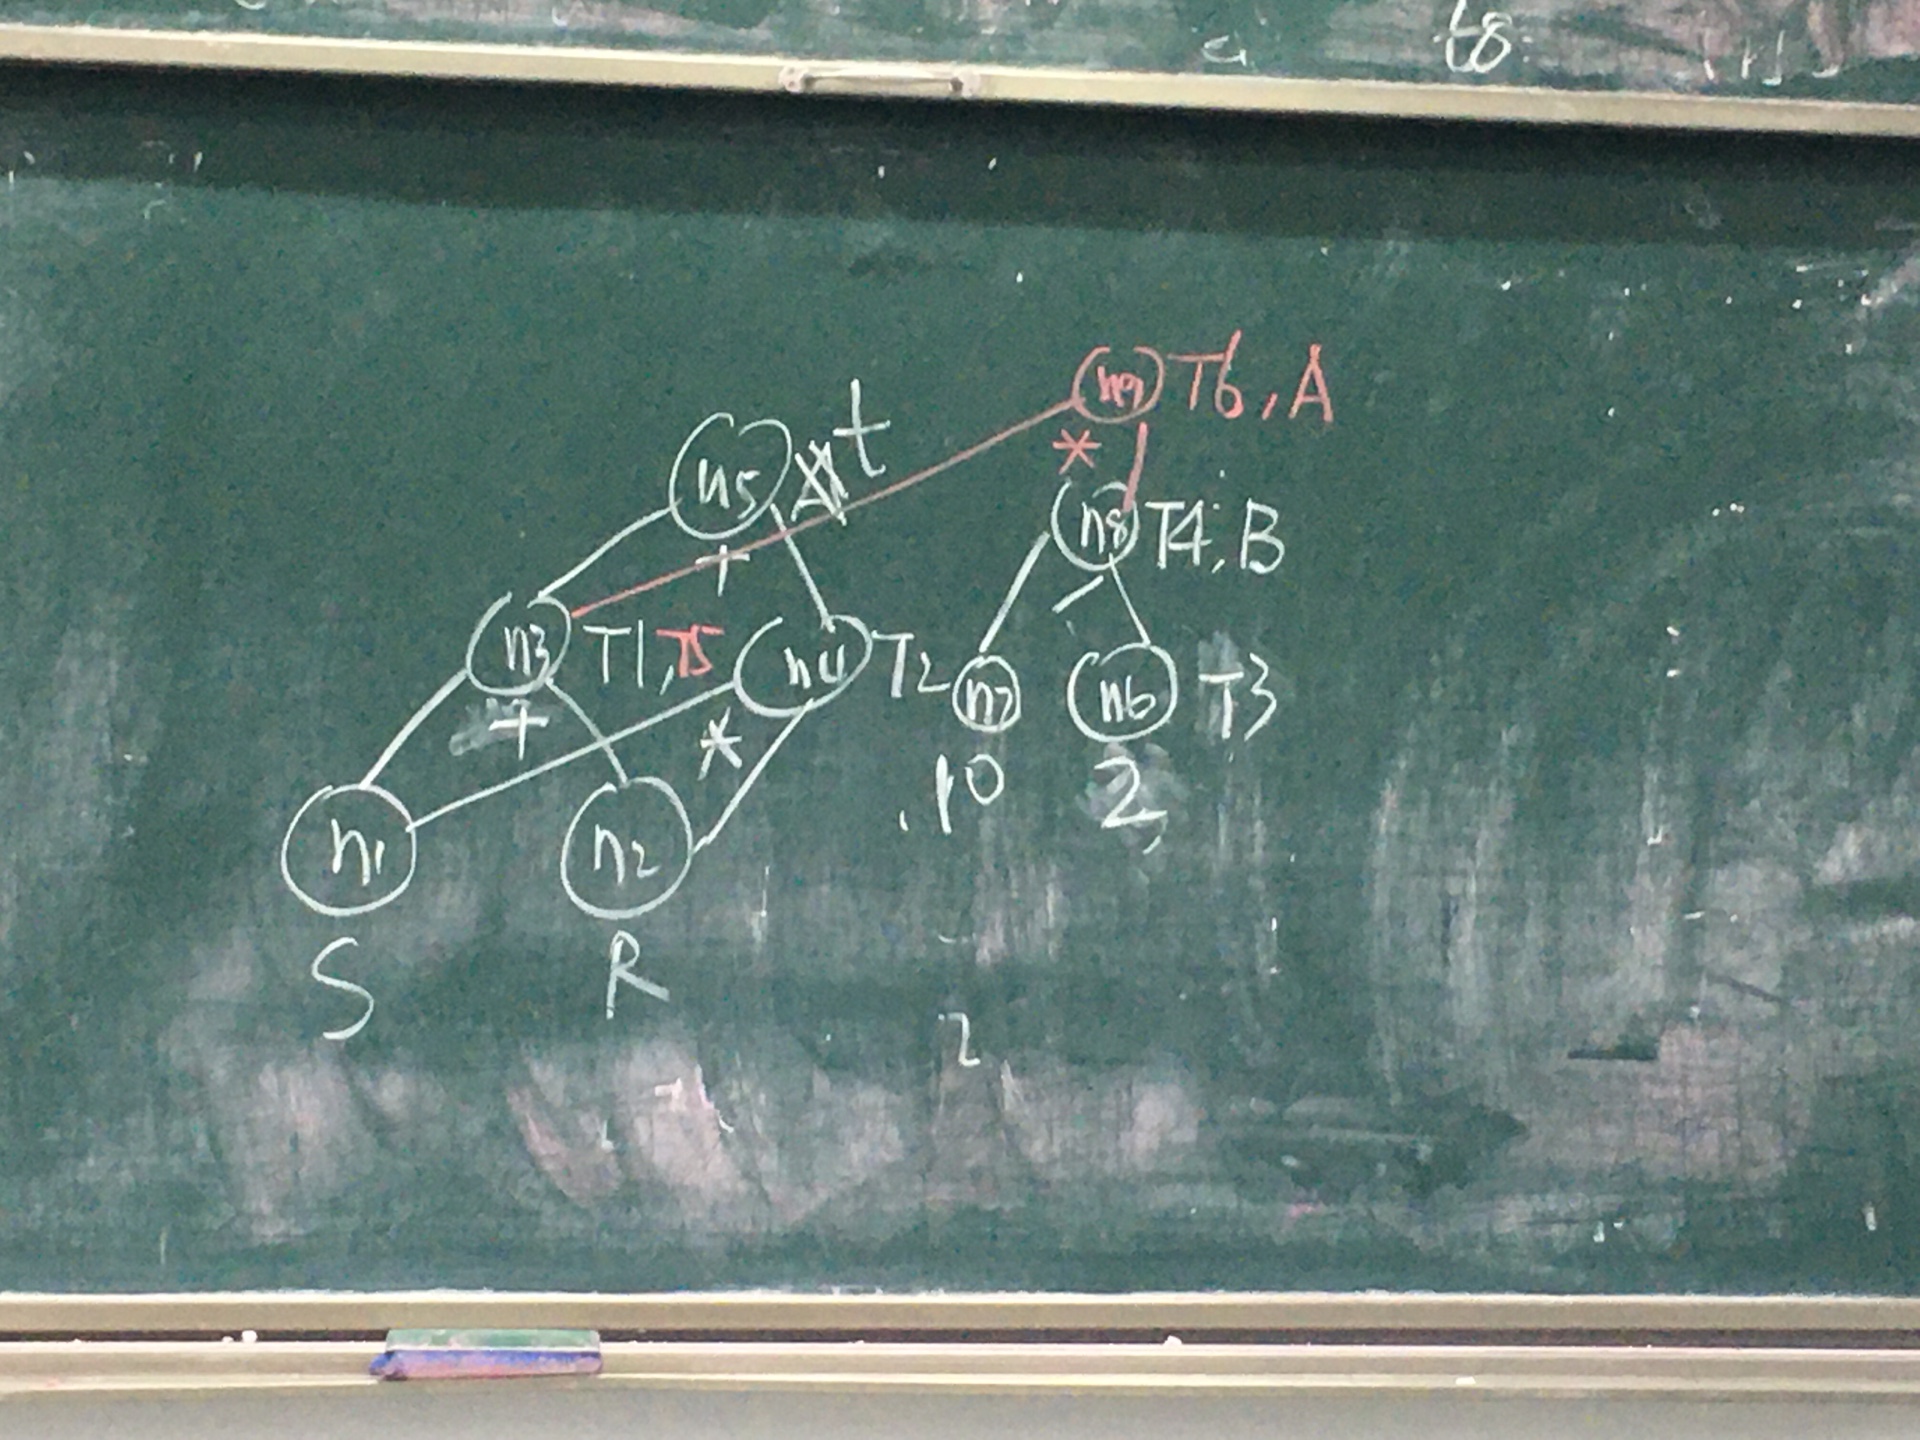 t8:
n9 T6, A
*
n5 A t
n8 T4, B
+
n3 T1, T5 n4 T2 n7 n6 T3
+ * 10 2
n1 n2
S R
2